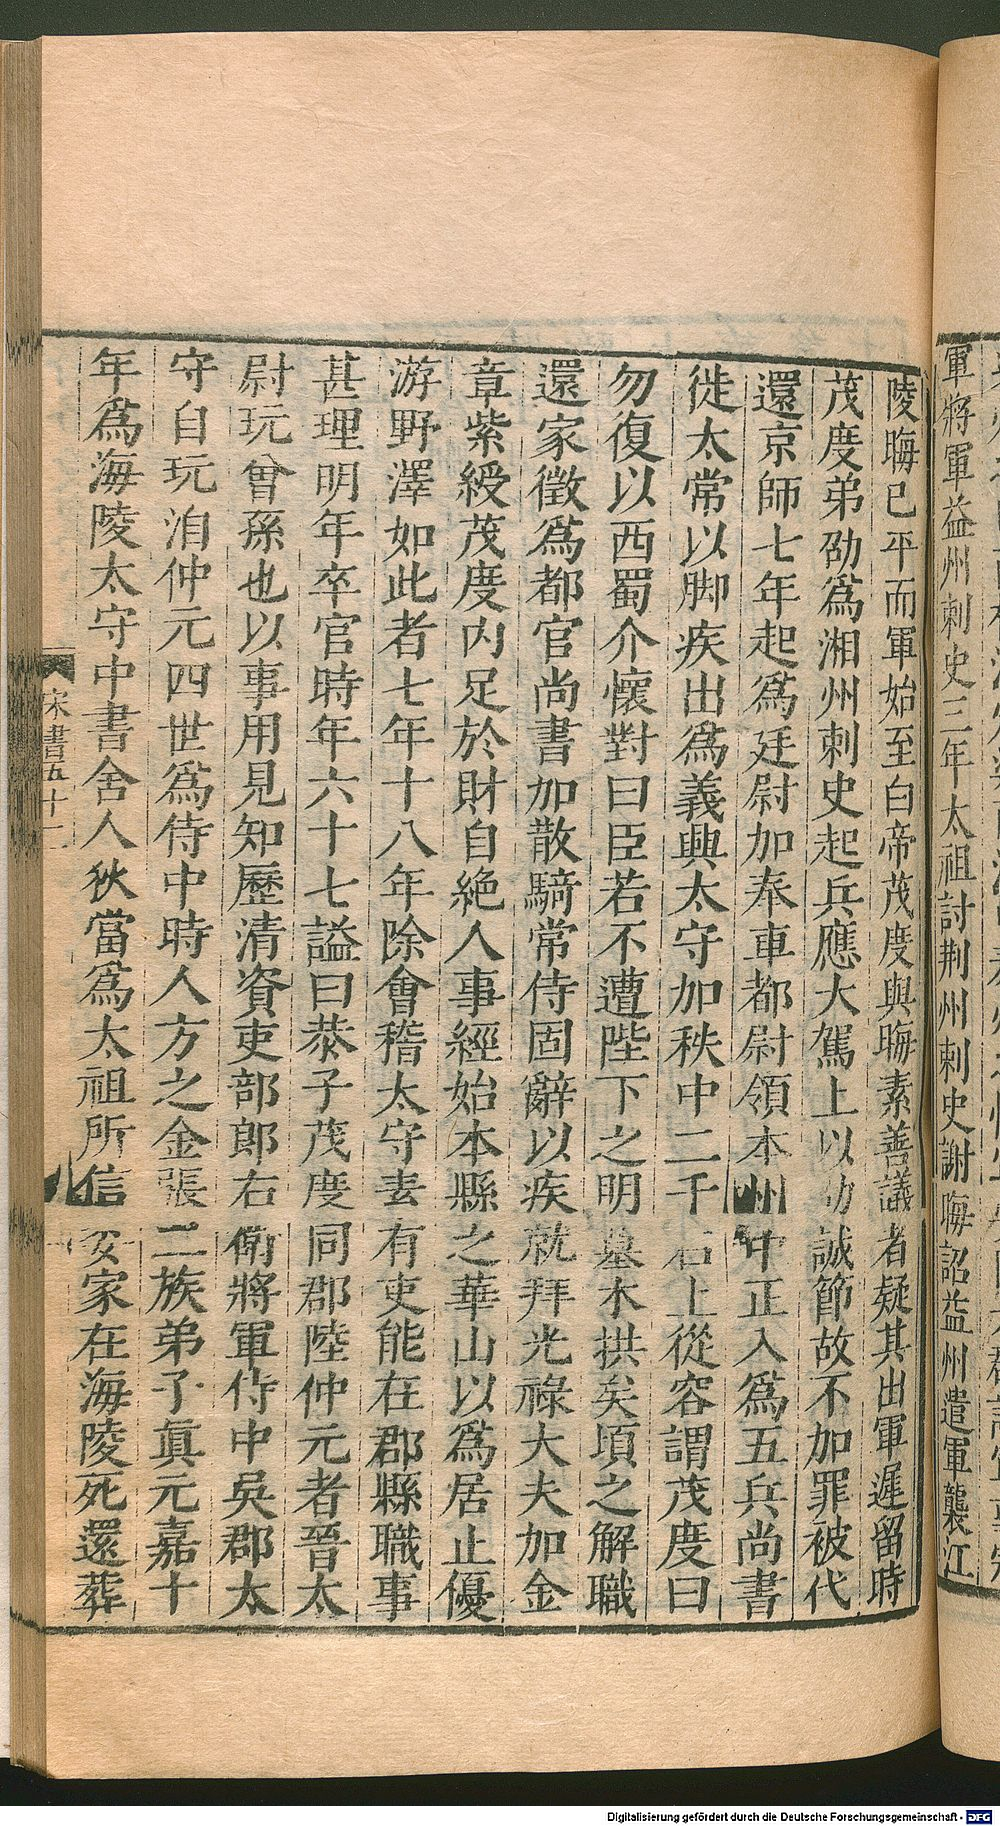 軍將軍益州刺史三年太祖討荆州刺史謝晦詔益州遣軍襲江
陵晦已平而軍始至白帝茂度與晦素善議者疑其出軍遲留時
茂度弟劭為湘州刺史起兵應大駕上以劭誠節故不加罪被代
還京師七年起為廷尉加奉車都尉領本州中正入為五兵尚書
徙太常以脚疾出為義興太守加秩中二千石上從容謂茂度曰
勿復以西蜀介懷對曰臣若不遭陛下之明墓木拱矣項之解職
還家徵為都官尚書加散騎常侍固辭以疾就拜光祿大夫加金
章紫綬茂度内足於財自絶人事經始本縣之華山以為居止優
游野澤如此者七年十八年除會稽太守素有吏能在郡縣職事
甚理明年卒官時年六十七謚曰恭子茂度同郡陸仲元者晉太
尉玩曾孫也以事用見知歷清資吏部郎右衛將軍侍中吳郡太
守自玩洎仲元四世為侍中時人方之金張二族弟子真元嘉十
年為海陵太守中書舍人狄當為太祖所信委家在海陵死還葬
宋書五十一
Digitalisierung gefördert durch die Deutsche Forschungsgemeinschaft - DFG